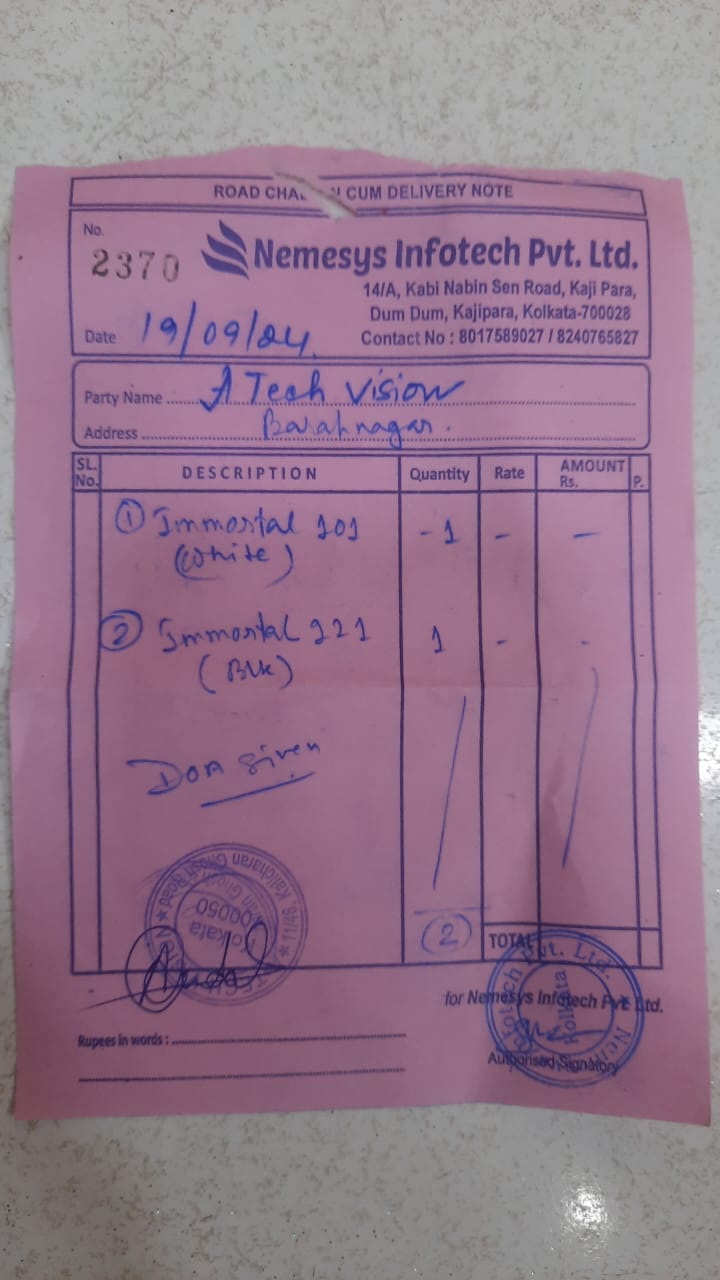 ROAD CHALAN CUM DELIVERY NOTE
No.
2370
Nemesys Infotech Pvt. Ltd.
14/A, Kabi Nabin Sen Road, Kaji Para,
Dum Dum, Kajipara, Kolkata-700028
Contact No : 8017589027 / 8240765827
Date 19/09/24
Party Name A Tech Vision
Address Barahnagar.
SL. No. DESCRIPTION Quantity Rate AMOUNT Rs. P.
① Immortal 101 - 1 - -
(White)
② Immortal 121 1 - -
(Blk)
DOA given
11/46, Kalicharan Ghosh Road
Kolkata
700050
2 TOTAL
for Nemesys Infotech Pvt Ltd.
Infotech Pvt. Ltd.
Kolkata
Rupees in words :
Authorised Signatory